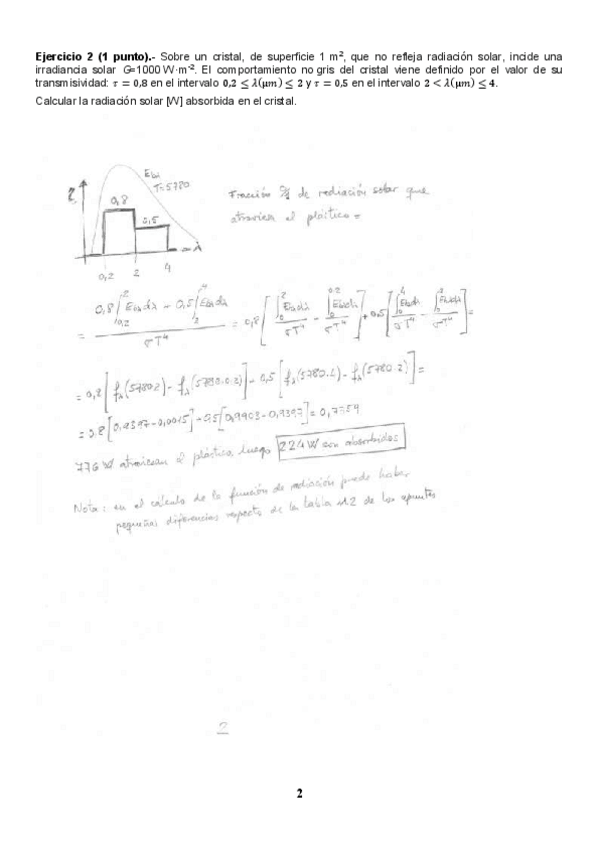 Ejercicio 2 (1 punto).- Sobre un cristal, de superficie 1 m², que no refleja radiación solar, incide una
irradiancia solar G=1000 W·m⁻². El comportamiento no gris del cristal viene definido por el valor de su
transmisividad: τ = 0,8 en el intervalo 0,2 ≤ λ(μm) ≤ 2 y τ = 0,5 en el intervalo 2 < λ(μm) ≤ 4.
Calcular la radiación solar [W] absorbida en el cristal.
Ebλ
T=5780
τ
0,8
0,5
λ
0,2 2 4
Fracción de radiación solar que
atraviesa el plástico =
= 0,8 [fλ(5780.2) - fλ(5780.0.2)] - 0,5 [fλ(5780.4) - fλ(5780.2)] =
= 0.8 [0,9397-0,0015] - 0.5 [0,9903-0,9397] = 0,7759
776 W atraviesan el plástico, luego 224 W son absorbidos
Nota: en el cálculo de la función de radiación puede haber
pequeñas diferencias respecto de la tabla 12 de los apuntes
2
2